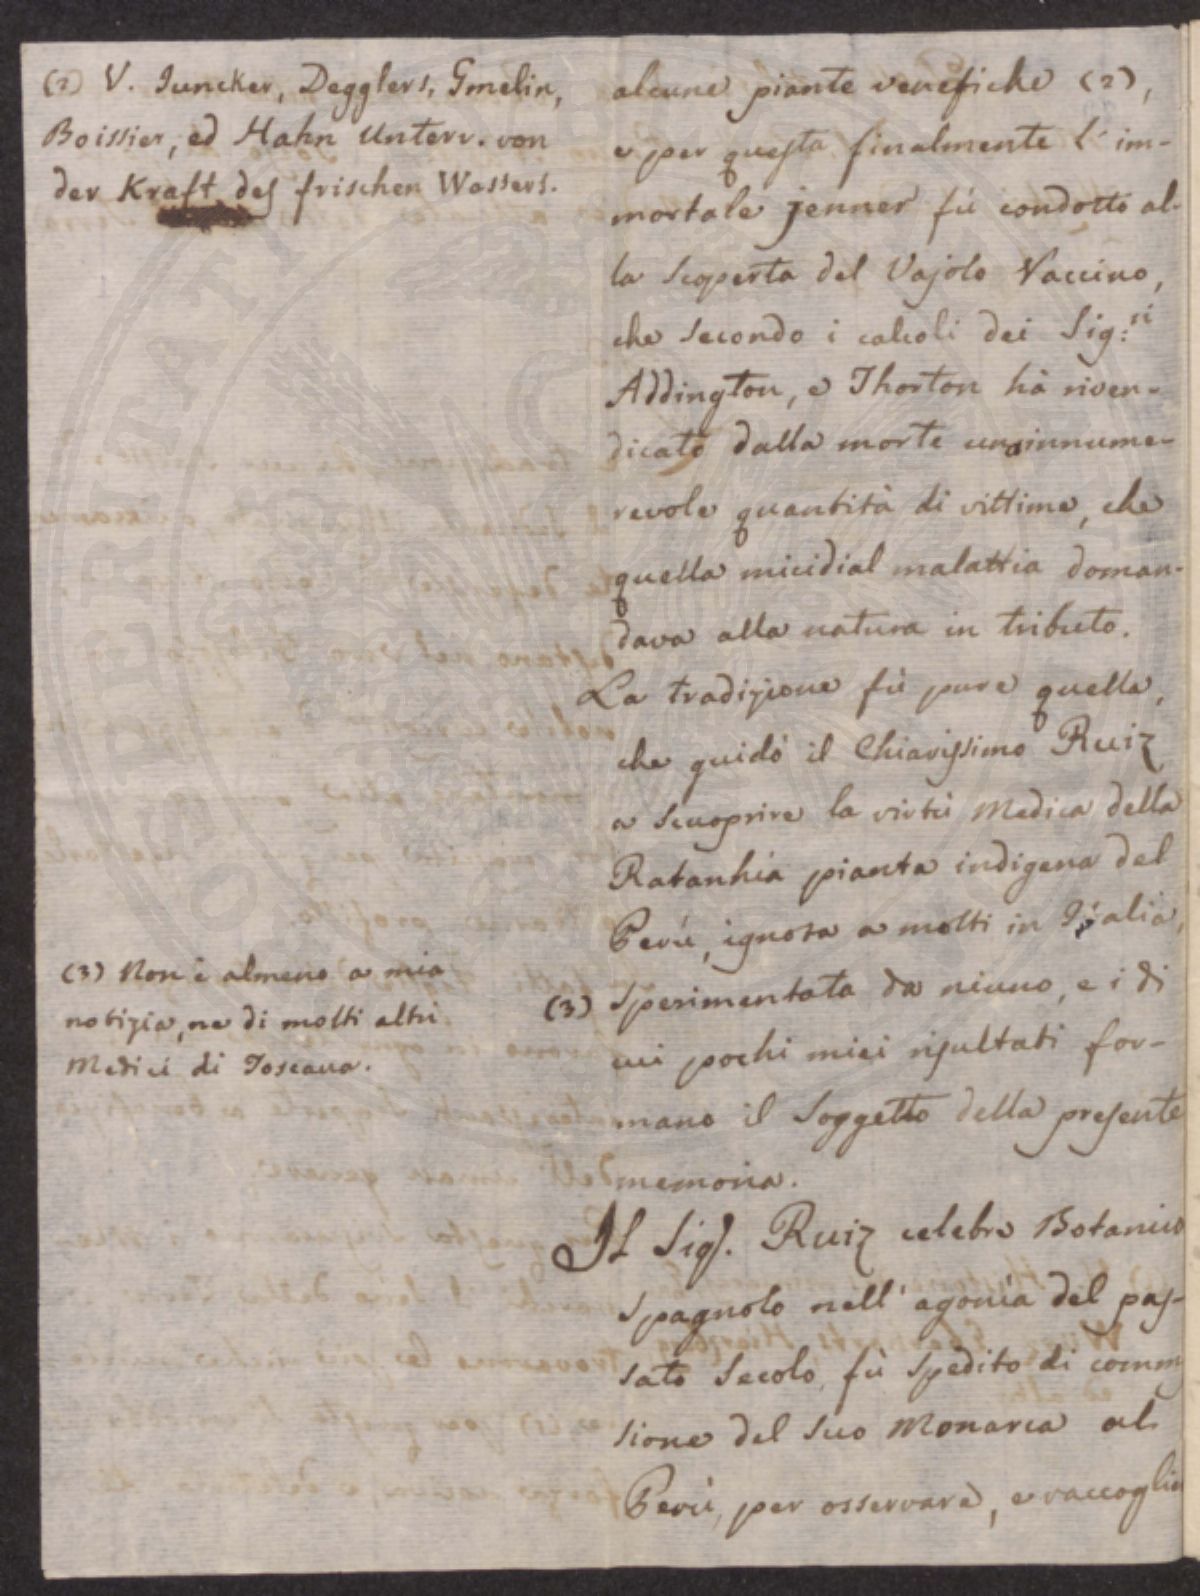 (2) V. Juncker, Degglers, Gmelin,
Boissier, ed Hahn Unterr. von
der Kraft des frischen Wassers.
alcune piante venefiche (2),
e per questa finalmente l'im-
mortale jenner fù condotto al-
la Scoperta del Vajolo Vaccino,
che secondo i calcoli dei Sig:ri
Addington, e Thorton hà riven-
dicato dalla morte un innume-
revole quantità di vittime, che
quella micidial malattia doman-
dava alla natura in tributo.
La tradizione fù pure quella,
che guidò il Chiarissimo Ruiz
a scuoprire la virtù Medica della
Ratanhia pianta indigena del
Perù, ignota a molti in Italia,
(3) Non è almeno a mia
notizia, ne di molti altri
Medici di Toscana.
(3) sperimentata da niuno, e i di
cui pochi miei risultati for-
mano il Soggetto della presente
memoria.
Il Sig. Ruiz celebre Botanico
Spagnolo nell'agonia del pas-
sato Secolo, fù Spedito di commis
sione del suo Monarca al
Perù, per osservare, e raccoglier
PROSPERITATI